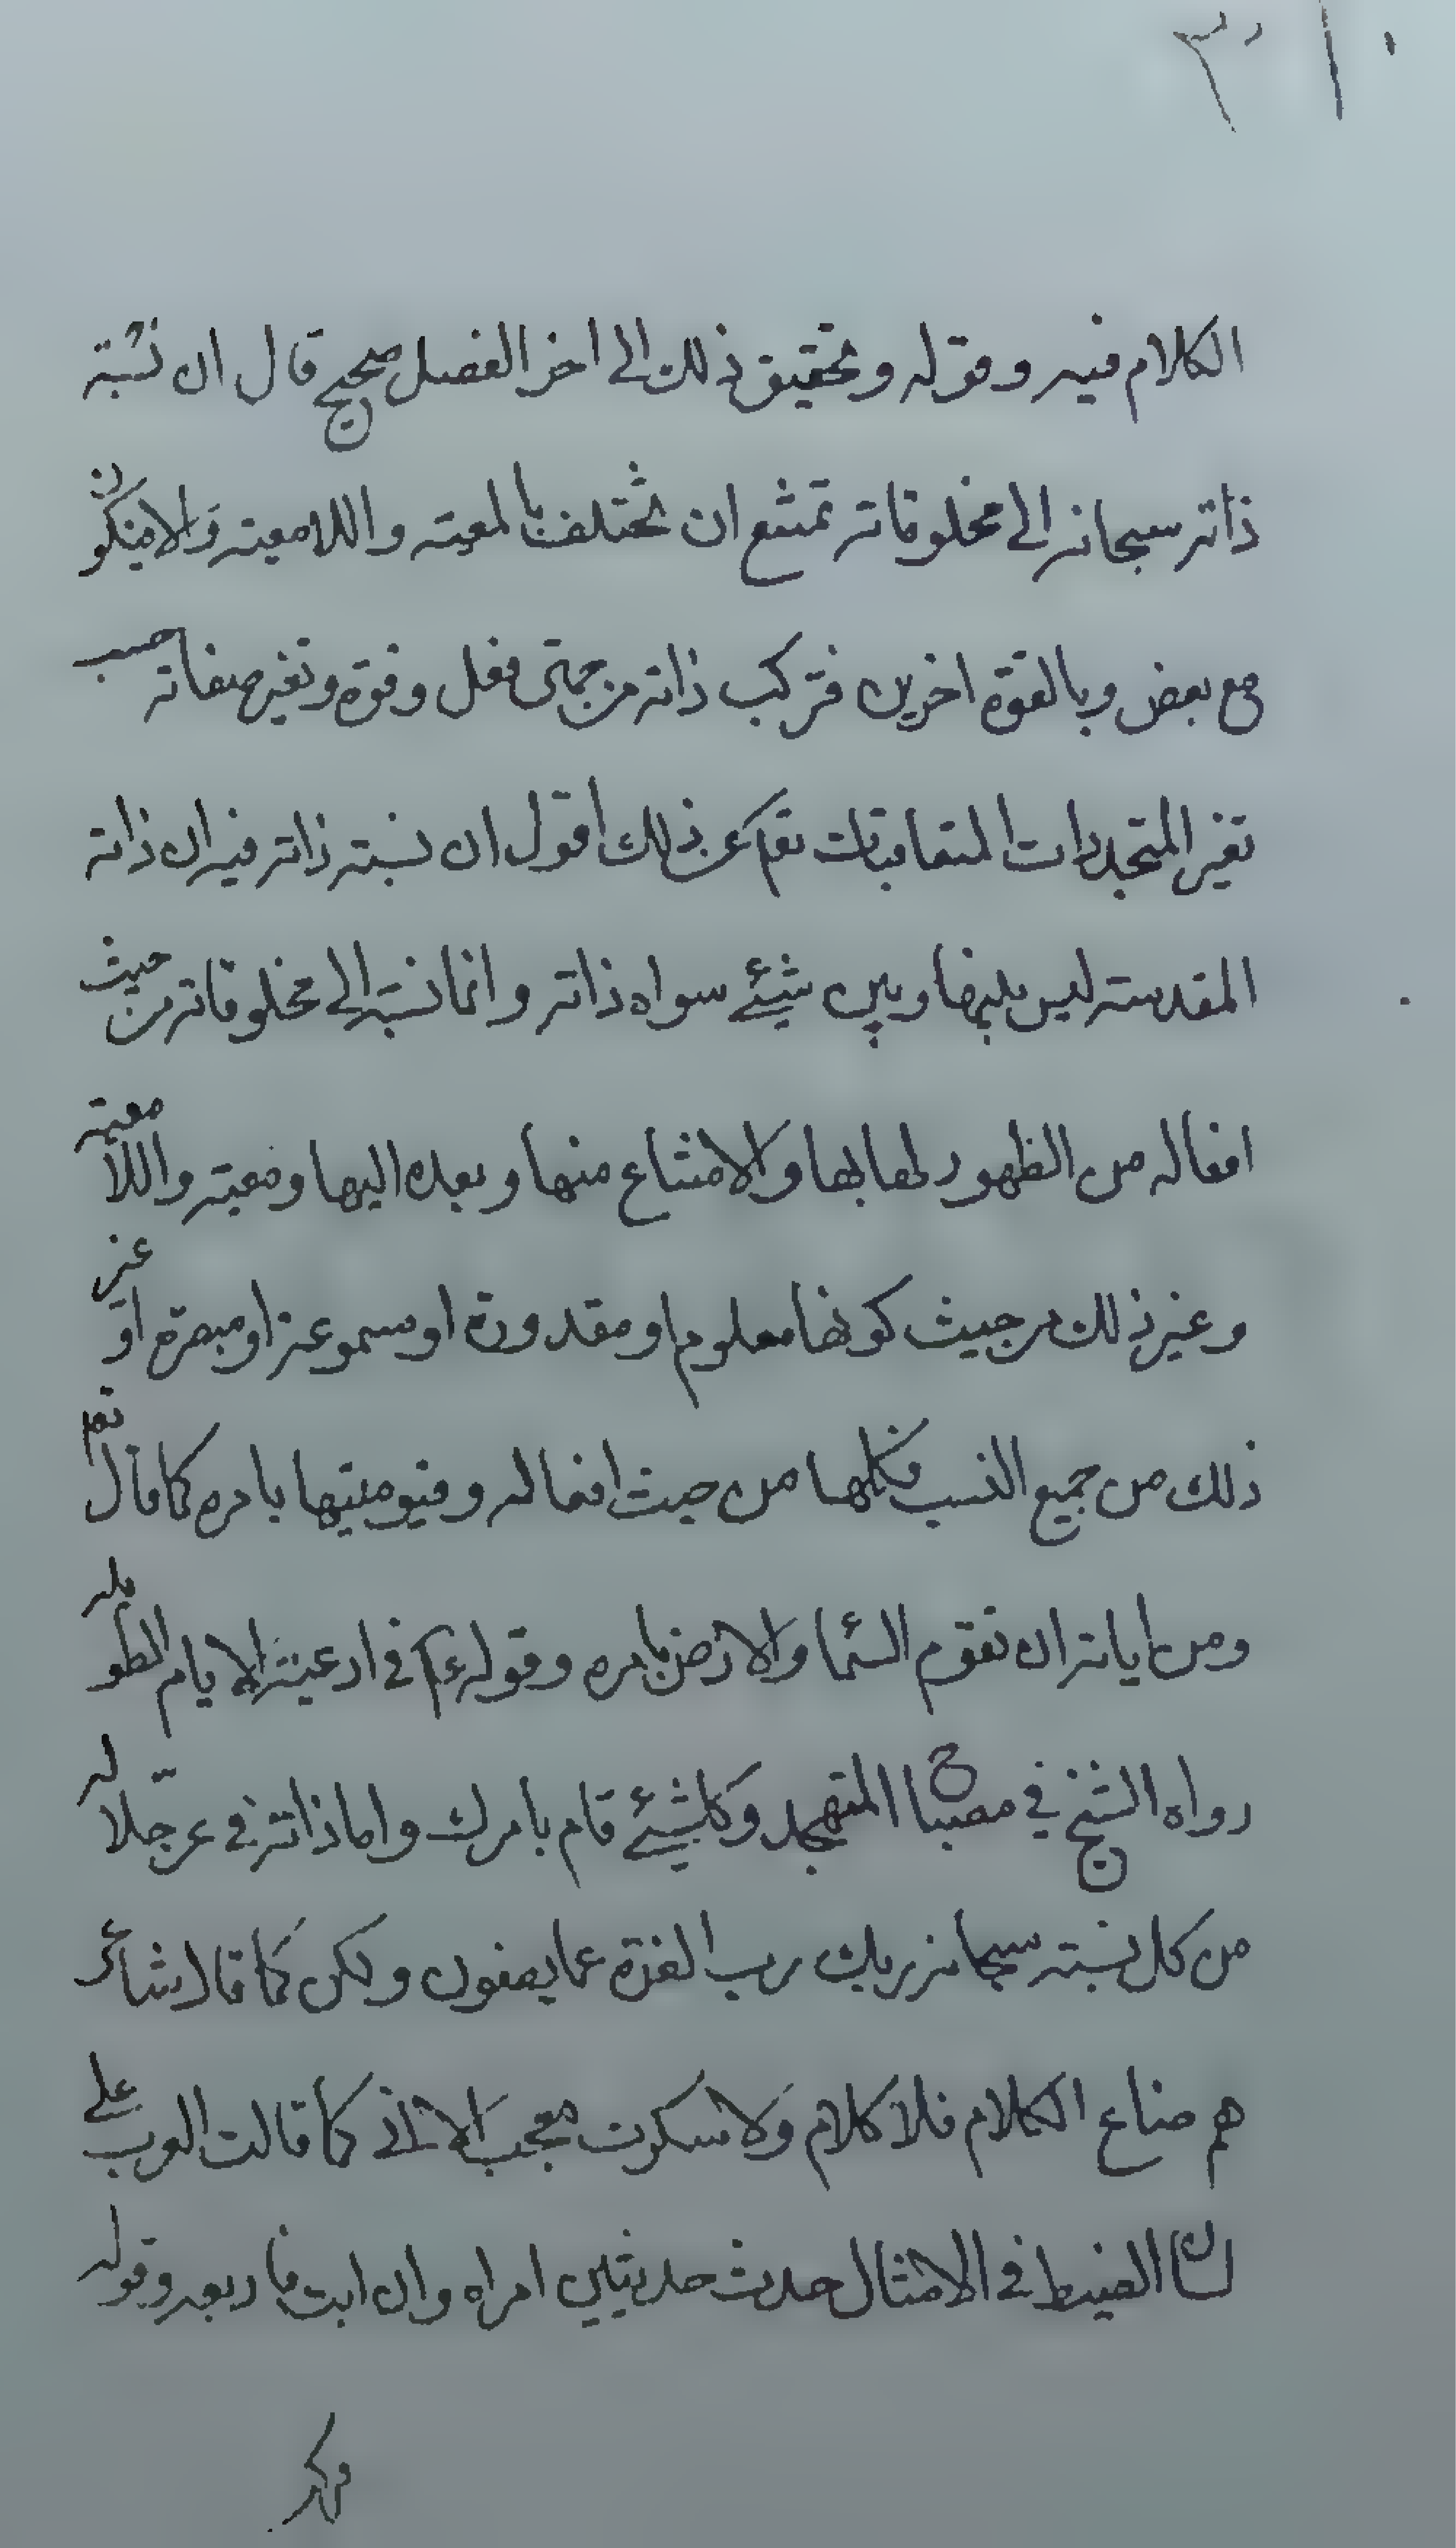 الكلام فيه وقوله وتحقيق ذلك الى اخر الفصل صحيح قال ان نسبة
ذاته سبحانه الى مخلوقاته تمتنع ان تختلف بالمعية واللامعية والا فيكون
مع بعض وبالقوة اخرين فتركب ذاته من جهتى فعل وقوة وتغير صفاته حسب
تغير المتجددات المتعاقبات تعم عن ذلك اقول ان نسبته ذاته فيه ان ذاته
المقدسة ليس بينها وبين شيئ سواه ذاته وانما نسبته الى مخلوقاته من حيث
افعاله من الظهور لها بها والامتناع منها وبعده اليها ومعيته واللامعيته
وغير ذلك من حيث كونها معلوم او مقدورة او سموعة او مبصرة او غير
ذلك من جميع النسب فكلها من حيث افعاله وقيوميتها بامره كما قال تعم
ومن اياته ان تقوم السماء والارض بامره وقوله ءم في ادعية الايام الطويله
رواه الشيخ في مصباح المتهجد وكلشيئ قام بامرك واما ذاته في عز جلاله
من كل نسبته سبحانه ربك رب العزة عما يصفون ولكن كما قال شاعر
هم صناع الكلام فلا كلام ولا سكوت معجب كما قالت العرب على
لسان الضبط في الامثال حدث حديثين امراه وان ابت فاربعه وقوله